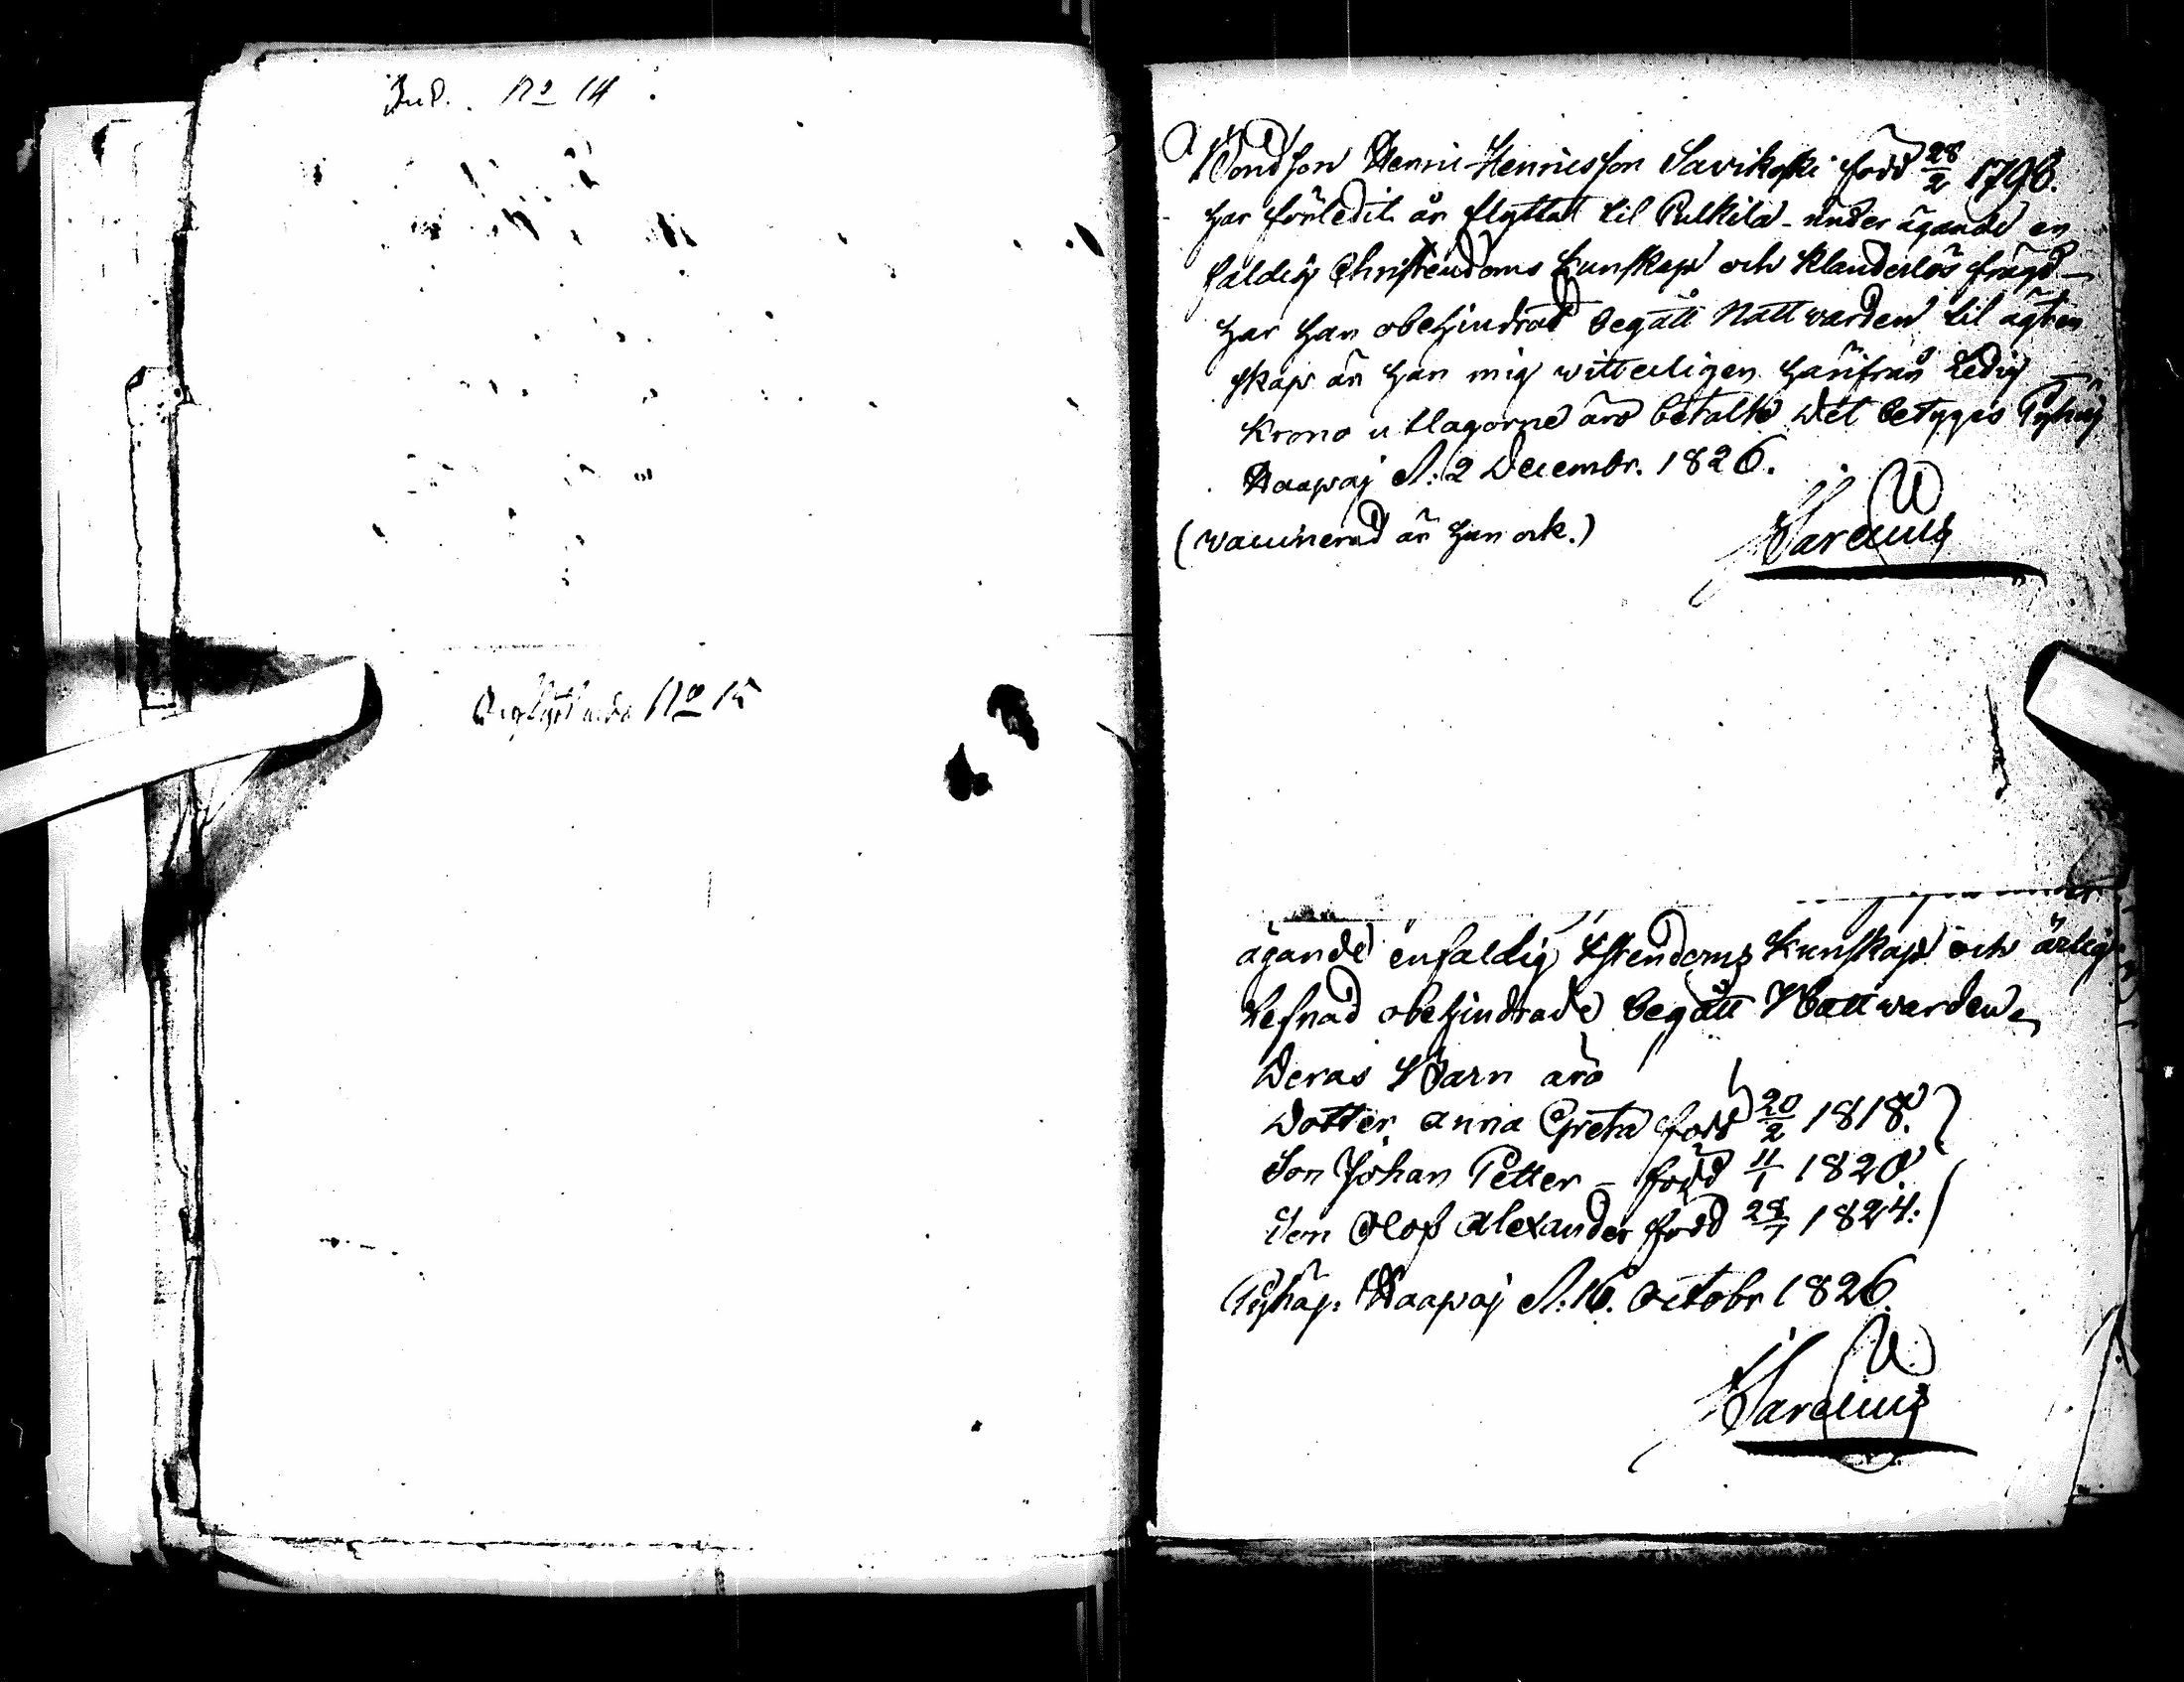 Ind. No 14
Inflyttade No 15
Bondson Henric Henricsson Savikoski född 28/2 1798.
har förledit år flyttat til Pulkila - under ägande en
faldig Christendoms kunskap och klanderlös frägd
har han obehindrad begått Nattwarden til ägten
skap är han mig witterligen härifrån Ledig
Krono utlagorne äro betalte Det betyges Pyhäj
Haapaj d. 2 Decembr. 1826.
(waccinerad är han ock.)
ägande enfaldig Xstendoms Kunskap och ärlig
Lefnad obehindrade begått Nattwarden
Deras Barn äro
Dotter Anna Greta född 20/2 1818.
Son Johan Petter - född 11/1 1820.
Son Olof Alexander född 1824.
Pyhäj. Haapaj d. 16. Octobr 1826.